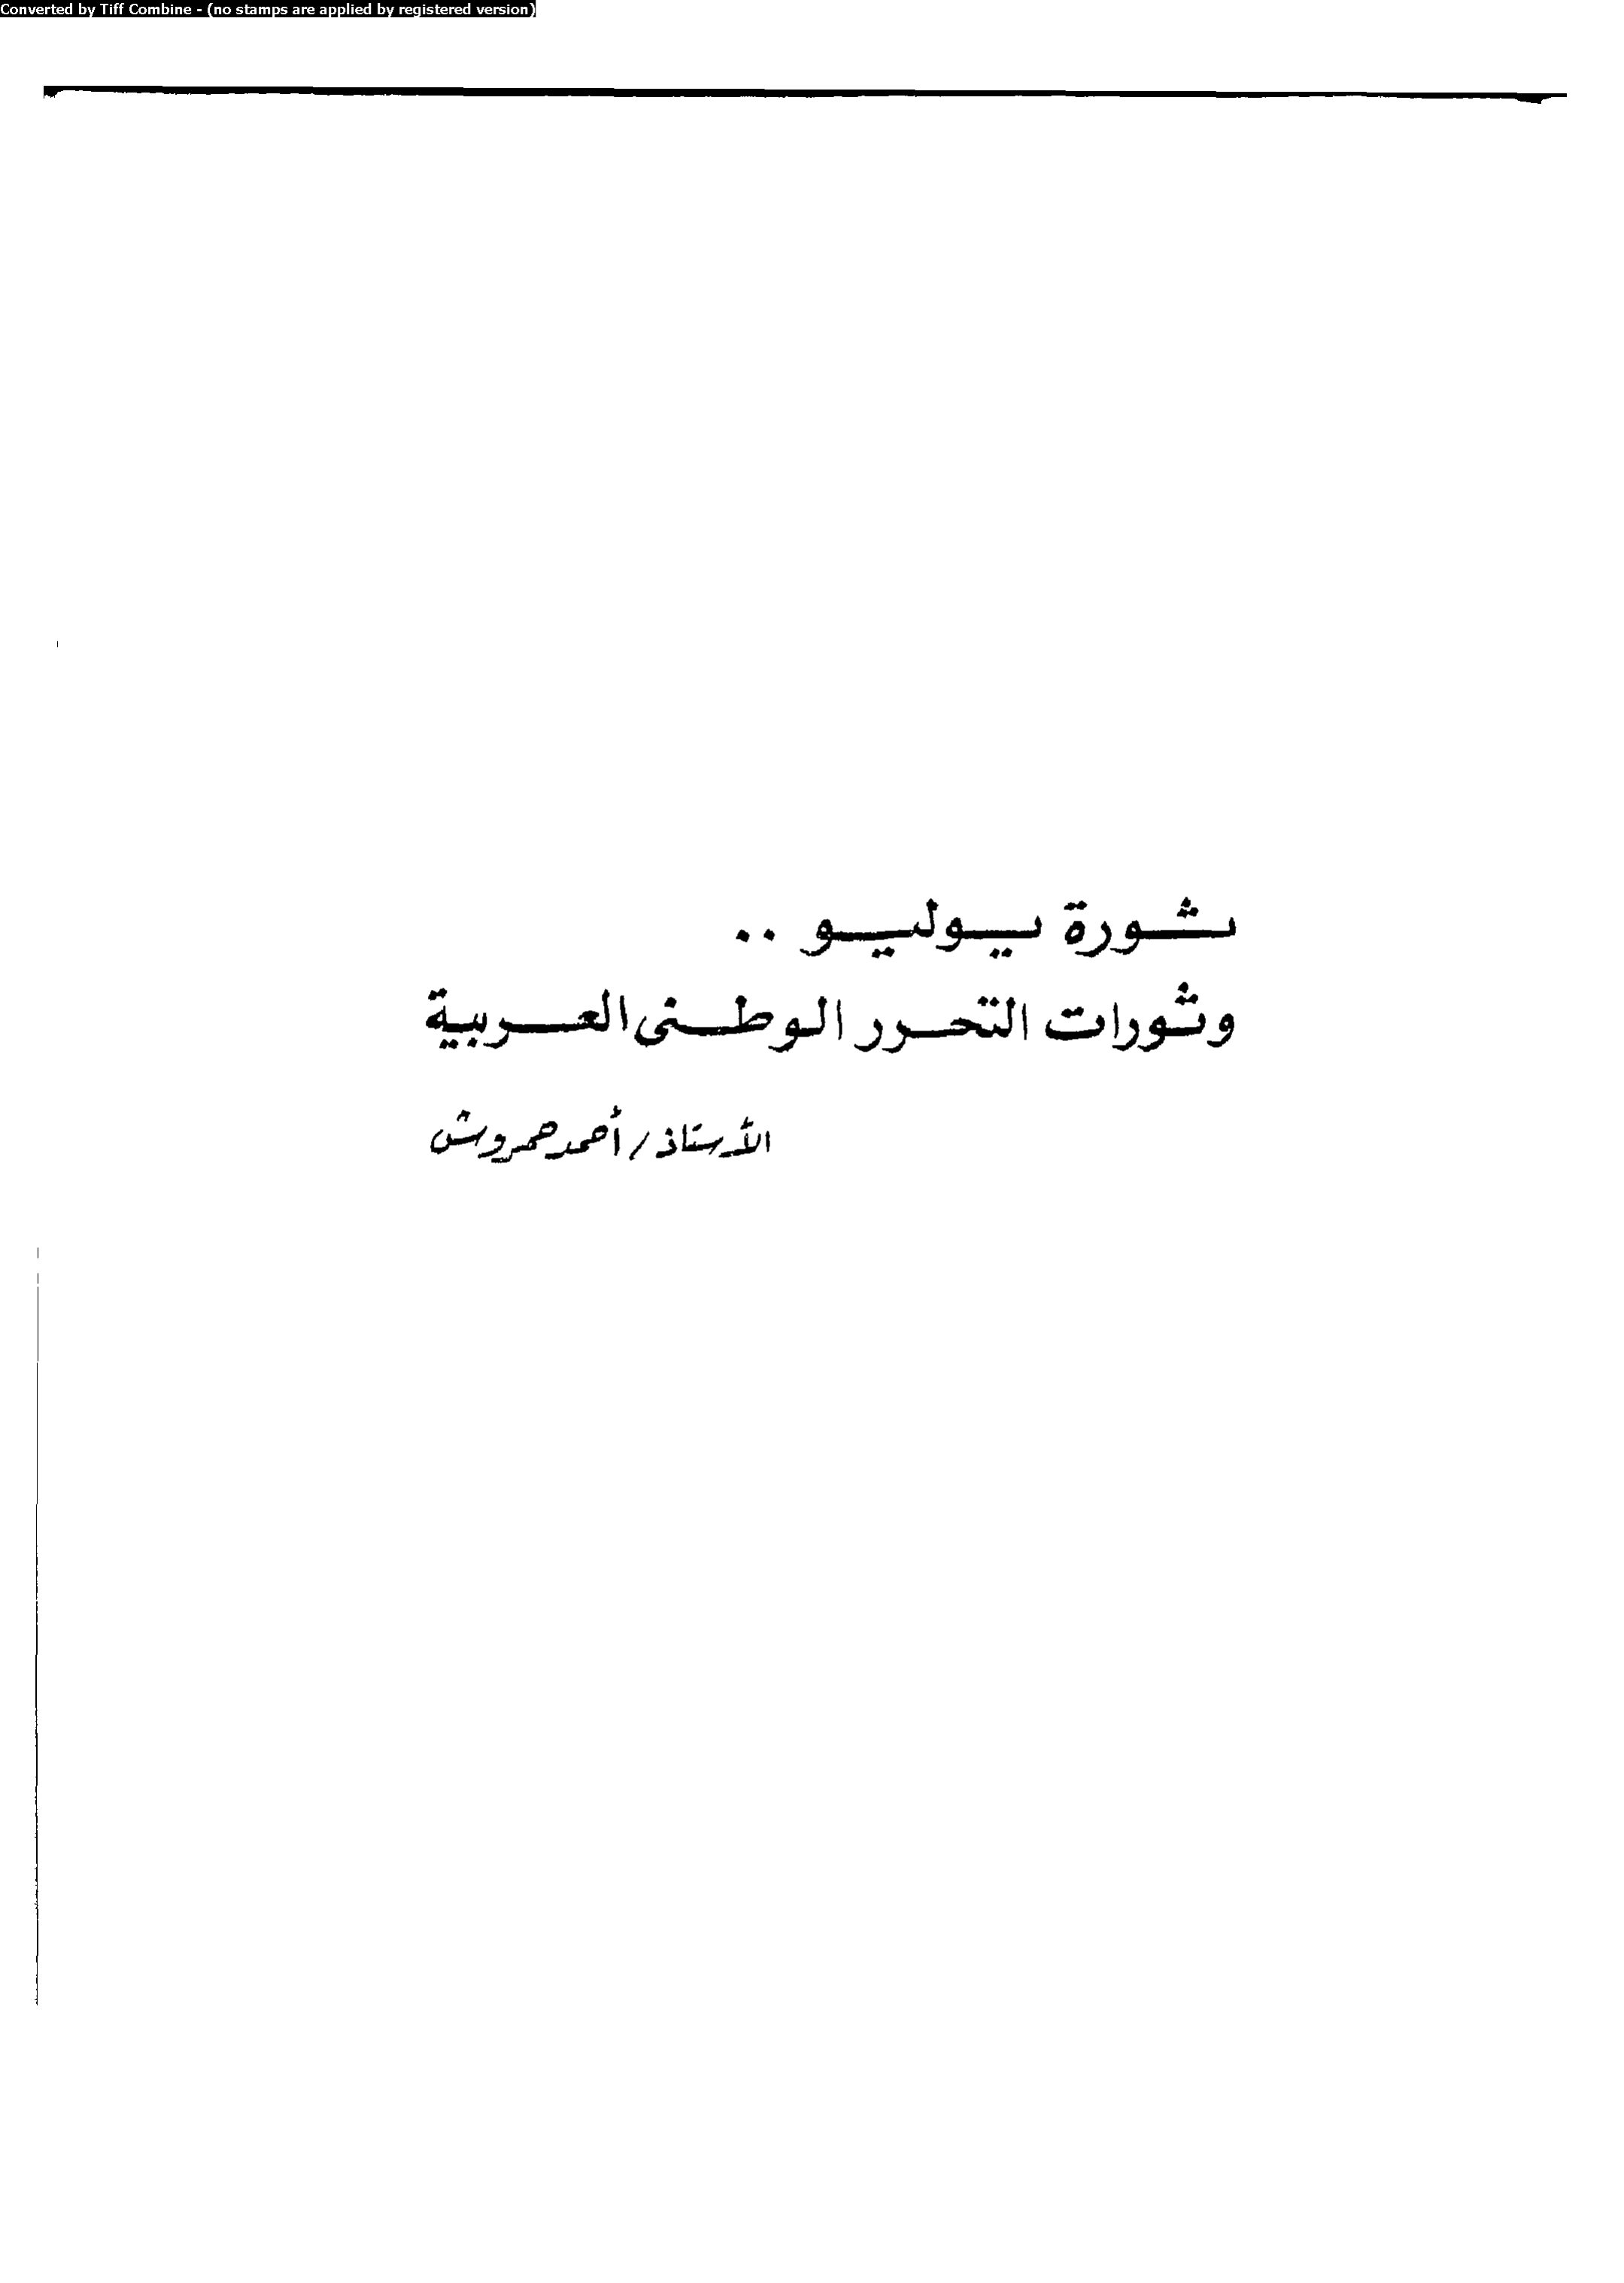 Converted by Tiff Combine - (no stamps are applied by registered version)
ثورة يوليو ..
وثورات التحرر الوطنى العربية
الأستاذ / أحمد حمروش